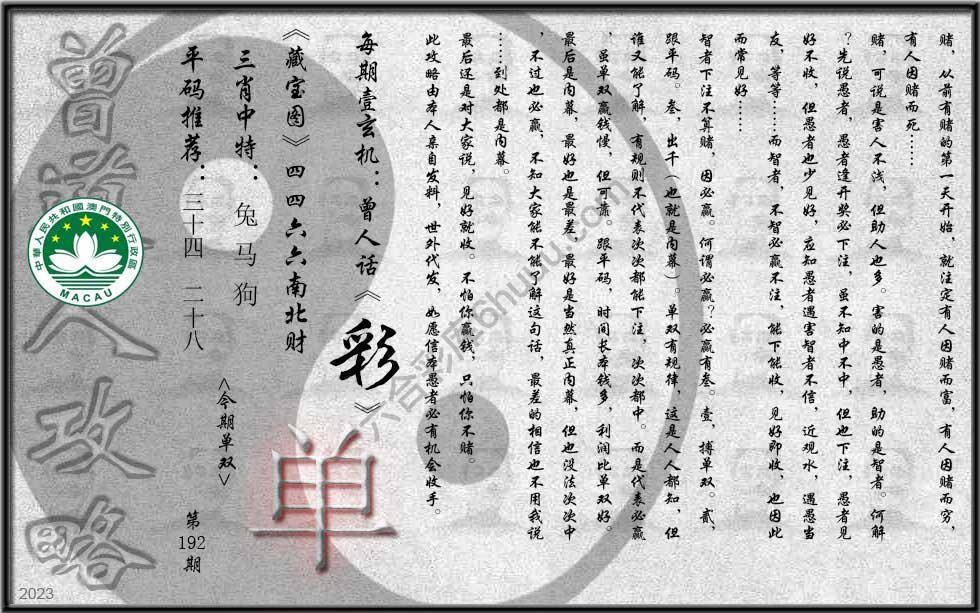 赌，从前有赌的第一天开始，就注定有人因赌而富，有人因赌而穷，
有人因赌而死……
赌，可说是害人不浅，但助人也多。害的是愚者，助的是智者。何解
？先说愚者，愚者逢开奖必下注，虽不知中不中，但也下注，愚者见
好不收，但愚者也少见好，应知愚者遇害智者不信，近观水，遇愚当
友，等等……而智者，不智必赢不注，能下能收，见好即收，也因此
而常见好……
智者下注不算赌，因必赢。何谓必赢？必赢有叁。壹，搏单双。贰，
跟平码。叁，出千（也就是内幕）。单双有规律，这是人人都知，但
谁又能了解，有规则不代表次次都能下注，次次都中。而是代表必赢
，虽单双赢钱慢，但可靠。跟平码，时间长本钱多，利润比单双好。
最后是内幕，最好也是最差，最好是当然真正内幕，但也没法次次中
，不过也必赢，不知大家能不能了解这句话，最差的相信也不用我说
……到处都是内幕。
最后还是对大家说，见好就收。不怕你赢钱，只怕你不赌。
此攻略由本人亲自发料，世外代发，如愿信本愚者必有机会收手。
每期壹玄机：曾人话《彩》
《藏宝图》四四六六南北财
三肖中特：兔 马 狗
平码推荐：三十四 二十八
<今期单双>
单
第
192
期
曾道人攻略
中華人民共和國澳門特別行政區
MACAU
六合彩库6huhu.com
2023